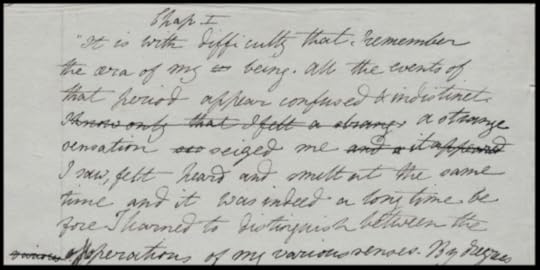 Chap. I
"It is with difficulty that I remember
the æra of my being. All the events of
that period appear confused & indistinct.
I know only that I felt a strange a strange
sensation seized me and it appeared
I saw, felt heard and smelt at the same
time and it was indeed a long time be
fore I learned to distinguish between the
operations of my various senses. By degrees